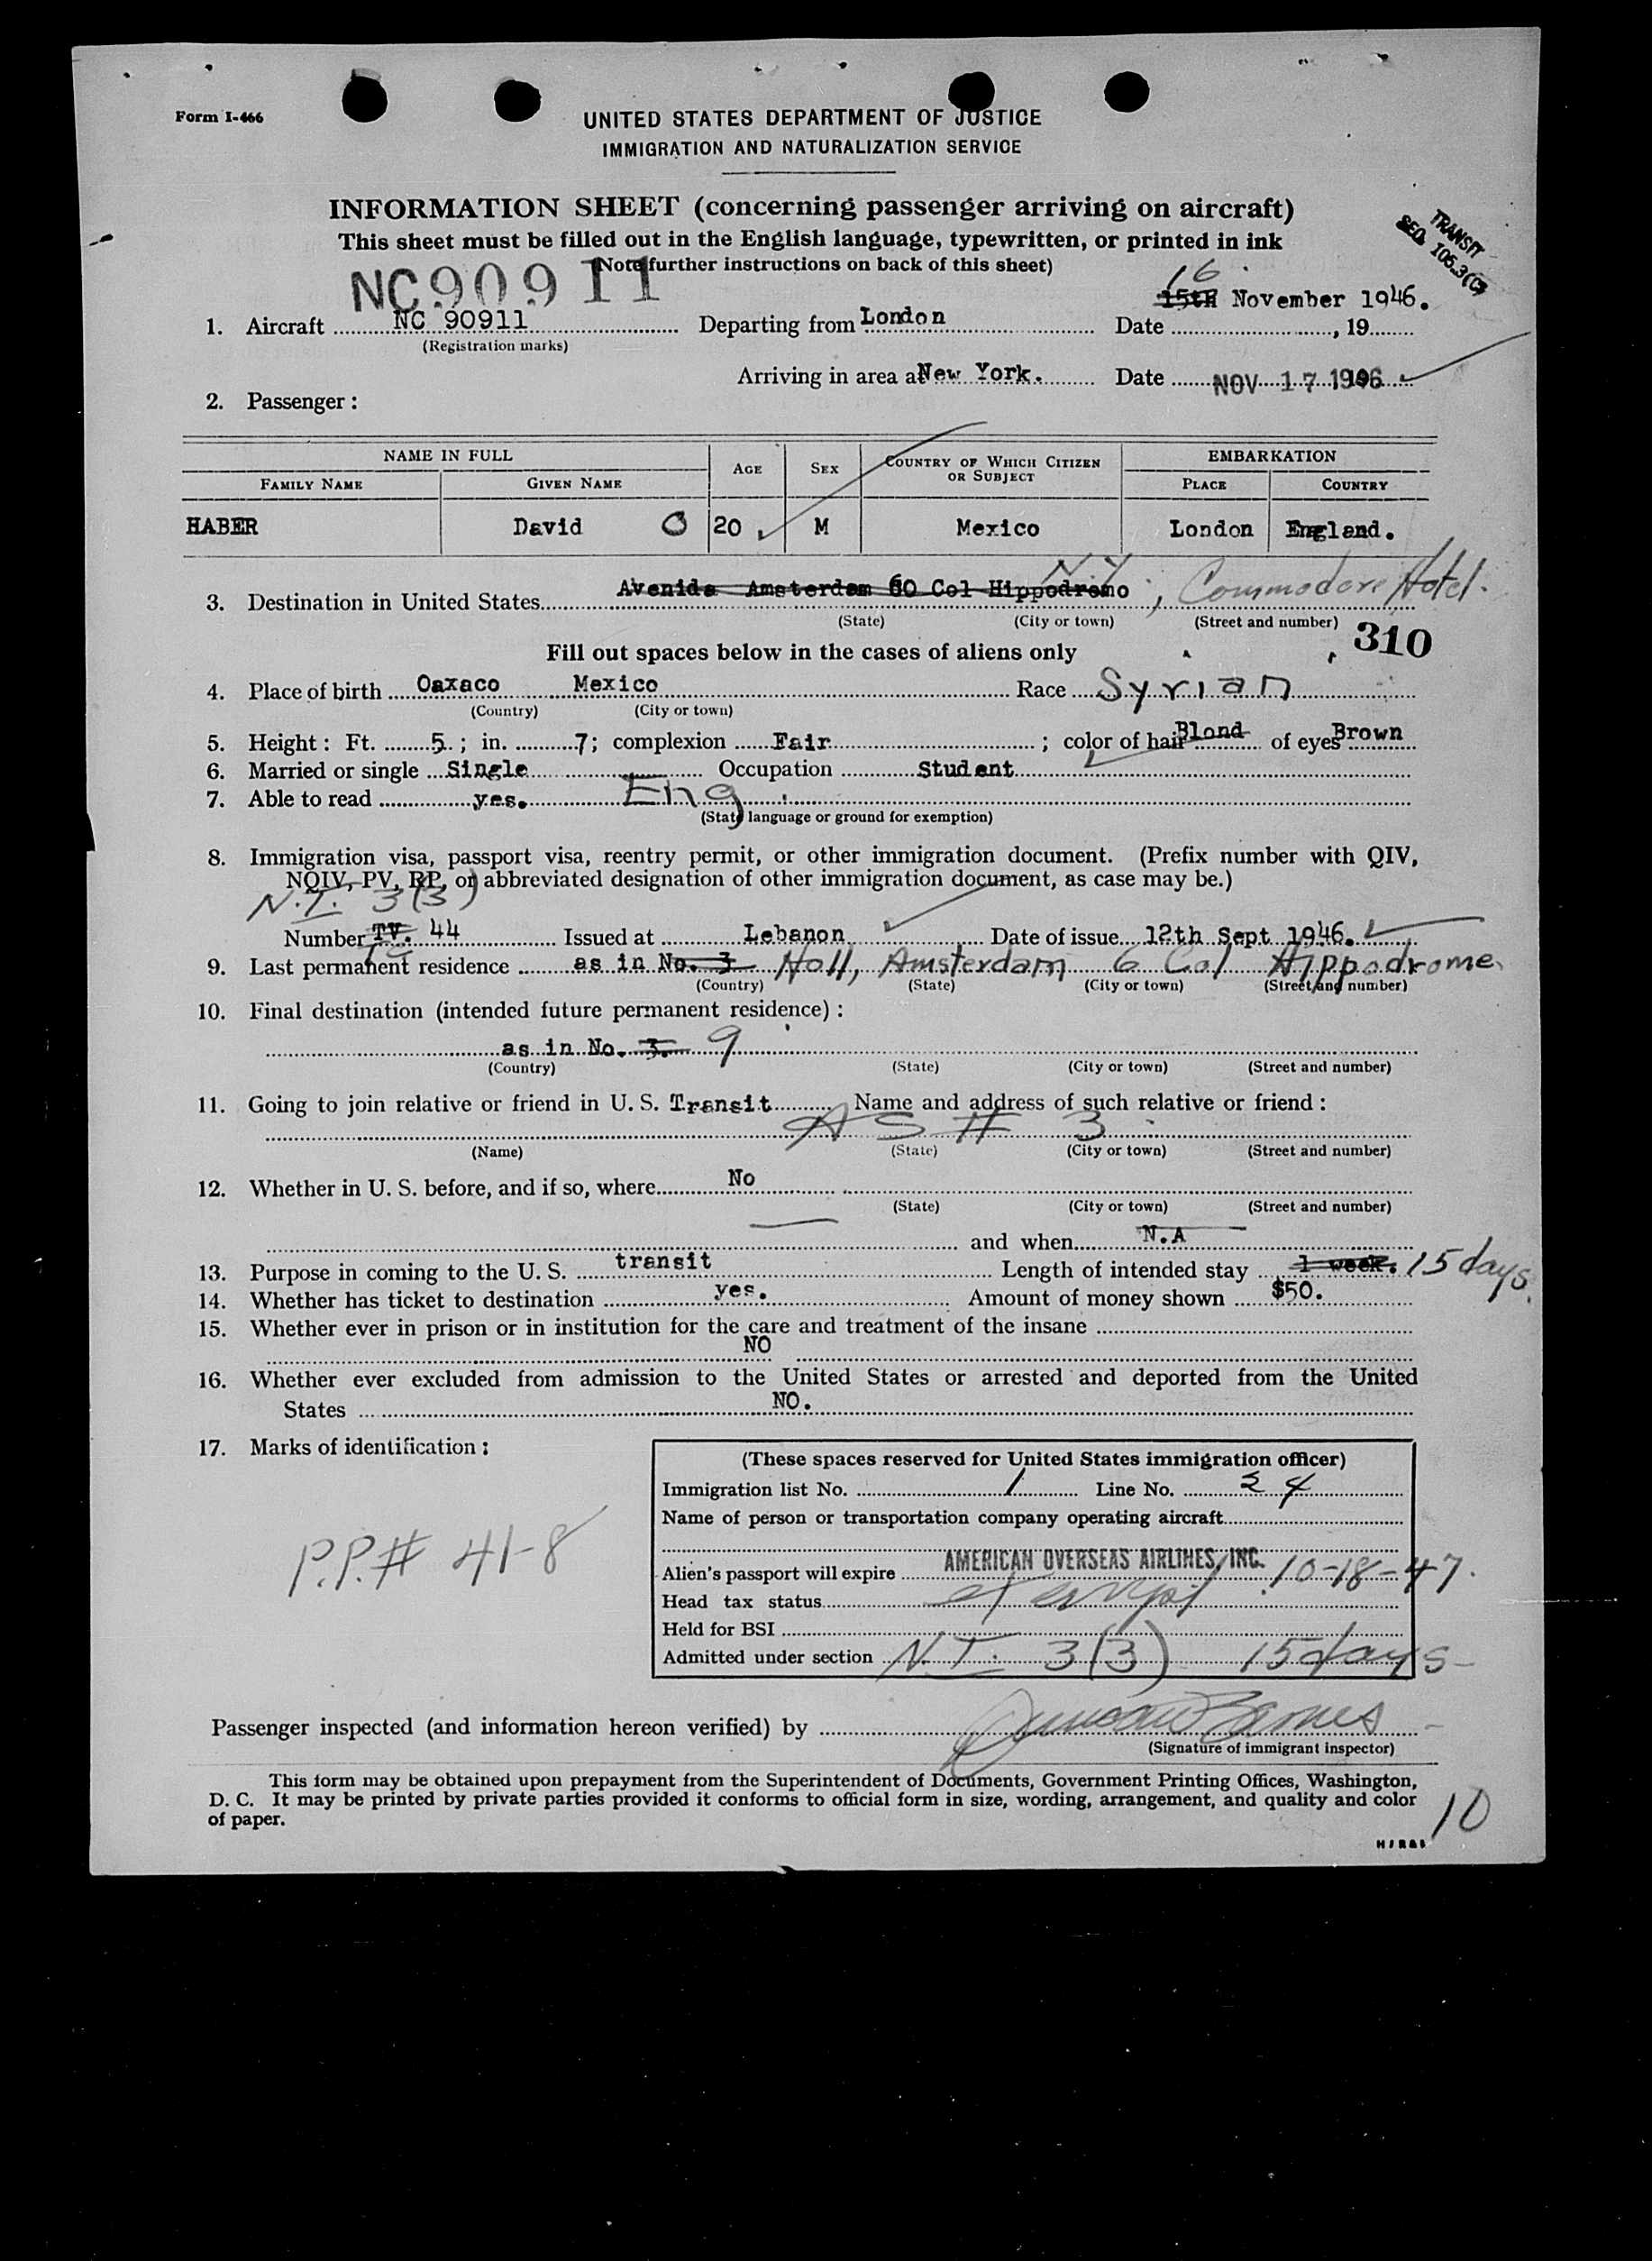 Form I-466
UNITED STATES DEPARTMENT OF JUSTICE
IMMIGRATION AND NATURALIZATION SERVICE
INFORMATION SHEET (concerning passenger arriving on aircraft)
This sheet must be filled out in the English language, typewritten, or printed in ink
(Note further instructions on back of this sheet)
TRANSIT
SEC. 105.3(C)
NC90911
16
1. Aircraft NC 90911 Departing from London Date 15th November 1946. , 19
(Registration marks)
Arriving in area at New York. Date NOV 17 1946
2. Passenger:
NAME IN FULL AGE SEX COUNTRY OF WHICH CITIZEN OR SUBJECT EMBARKATION
FAMILY NAME GIVEN NAME PLACE COUNTRY
HABER David O 20 M Mexico London England.
3. Destination in United States Avenida Amsterdam 60 Col Hippodromo N.Y. ; Commodore Hotel.
(State) (City or town) (Street and number)
310
Fill out spaces below in the cases of aliens only
4. Place of birth Oaxaco Mexico Race Syrian
(Country) (City or town)
5. Height: Ft. 5 ; in. 7; complexion Fair ; color of hair Blond of eyes Brown
6. Married or single Single Occupation Student
7. Able to read yes. Eng.
(State language or ground for exemption)
8. Immigration visa, passport visa, reentry permit, or other immigration document. (Prefix number with QIV,
NQIV, PV, RP, or abbreviated designation of other immigration document, as case may be.)
N.I. 3(3)
Number TV. 44 Issued at Lebanon Date of issue 12th Sept 1946.
9. Last permanent residence as in No. 3 Holl, Amsterdam 6 Col Hippodrome
(Country) (State) (City or town) (Street and number)
10. Final destination (intended future permanent residence):
as in No. 3. 9
(Country) (State) (City or town) (Street and number)
11. Going to join relative or friend in U. S. Transit Name and address of such relative or friend:
AS # 3
(Name) (State) (City or town) (Street and number)
12. Whether in U. S. before, and if so, where No
(State) (City or town) (Street and number)
and when N.A
13. Purpose in coming to the U. S. transit Length of intended stay 1 week. 15 days.
14. Whether has ticket to destination yes. Amount of money shown $50.
15. Whether ever in prison or in institution for the care and treatment of the insane
NO
16. Whether ever excluded from admission to the United States or arrested and deported from the United
States NO.
17. Marks of identification:
P.P.# 41-8
(These spaces reserved for United States immigration officer)
Immigration list No. 1 Line No. 24
Name of person or transportation company operating aircraft
AMERICAN OVERSEAS AIRLINES, INC.
Alien's passport will expire 10-18-47.
Head tax status exempt
Held for BSI
Admitted under section N.I. 3(3) 15 days
Passenger inspected (and information hereon verified) by Duncan Barnes
(Signature of immigrant inspector)
This form may be obtained upon prepayment from the Superintendent of Documents, Government Printing Offices, Washington,
D. C. It may be printed by private parties provided it conforms to official form in size, wording, arrangement, and quality and color
of paper.
10